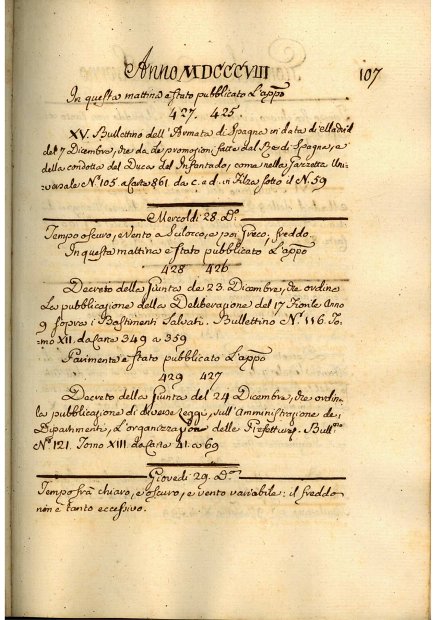 Anno MDCCCVIII 107
In questa mattina è stato pubblicato l'appo
427. 425.
XV. Bullettino dell'Armata di Spagna in data di Madrid
del 7 Dicembre, che dà de promozioni fatte dal Re di Spagna, e
della condotta del Duca del Infantado, come nella Gazzetta Uni-
versale N.º 105. a carte 861. da c. e d. in Filza sotto il N. 59
Mercoldì 28. Do.
Tempo oscuro, e vento a Scilocco, e poi Greco, freddo.
In questa mattina è stato pubblicato l'appo
428 426
Decreto della Giunta de 23. Dicembre, che ordina
la pubblicazione della Deliberazione del 17 Fiorile Anno
9 sopra i Bastimenti Salvati. Bullettino N.º 116. To-
mo XII. da Carte 349 a 359
Parimente è stato pubblicato l'appo
429 427
Decreto della Giunta del 24 Dicembre, che ordina
la pubblicazione di diverse leggi, sull'Amministrazione de
Dipartimenti, e l'organizzazione delle Prefetture. Bull.no
N.º 121. Tomo XIII da Carte 41. a 69
Giovedì 29. Do.
Tempo frà chiaro, e oscuro, e vento variabile: il freddo
non è tanto eccessivo.